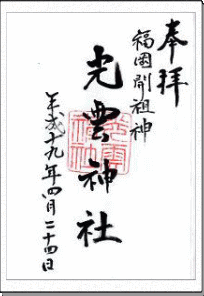 奉拝
福岡開祖神
光雲神社
平成十九年四月二十四日